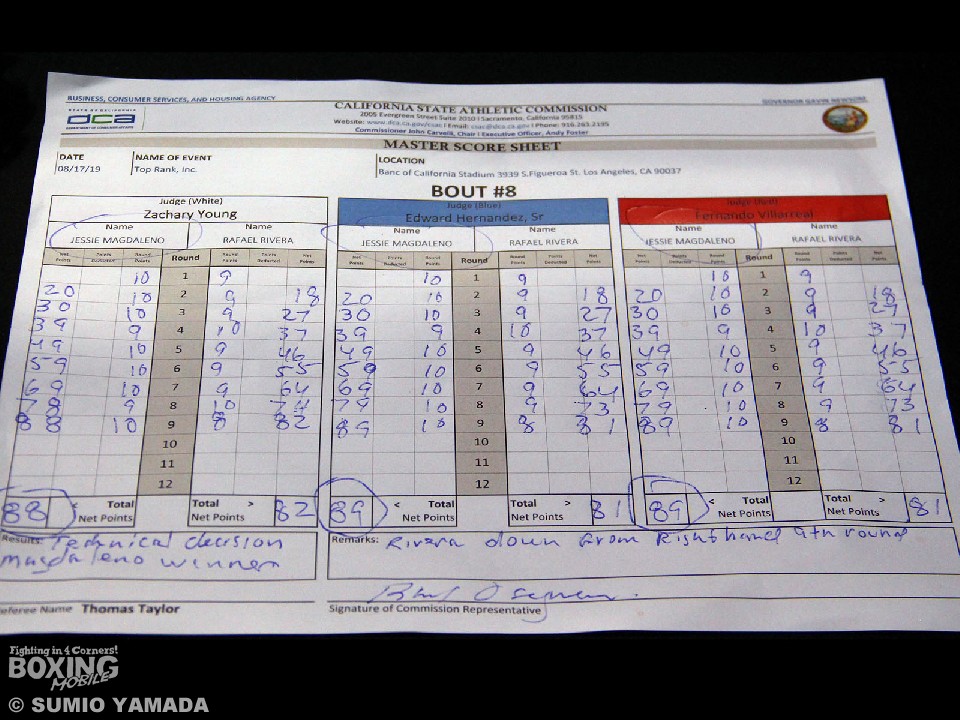 BUSINESS, CONSUMER SERVICES, AND HOUSING AGENCY
GOVERNOR GAVIN NEWSOM
STATE OF CALIFORNIA
dca
DEPARTMENT OF CONSUMER AFFAIRS
CALIFORNIA STATE ATHLETIC COMMISSION
2005 Evergreen Street Suite 2010 | Sacramento, California 95815
Website: www.dca.ca.gov/csac | Email: csac@dca.ca.gov | Phone: 916.263.2195
Commissioner John Carvelli, Chair | Executive Officer, Andy Foster
MASTER SCORE SHEET
DATE NAME OF EVENT LOCATION
08/17/19 Top Rank, Inc. Banc of California Stadium 3939 S.Figueroa St. Los Angeles, CA 90037
BOUT #8
Judge (White) Judge (Blue) Judge (Red)
Zachary Young Edward Hernandez, Sr Fernando Villarreal
Name Name Name Name Name Name
JESSIE MAGDALENO RAFAEL RIVERA JESSIE MAGDALENO RAFAEL RIVERA JESSIE MAGDALENO RAFAEL RIVERA
Net Points Points Deducted Round Points Round Round Points Points Deducted Net Points Net Points Points Deducted Round Points Round Round Points Points Deducted Net Points Net Points Points Deducted Round Points Round Round Points Points Deducted Net Points
10 1 9 10 1 9 10 1 9
20 10 2 9 18 20 10 2 9 18 20 10 2 9 18
30 10 3 9 27 30 10 3 9 27 30 10 3 9 27
39 9 4 10 37 39 9 4 10 37 39 9 4 10 37
49 10 5 9 46 49 10 5 9 46 49 10 5 9 46
59 10 6 9 55 59 10 6 9 55 59 10 6 9 55
69 10 7 9 64 69 10 7 9 64 69 10 7 9 64
78 9 8 10 74 79 10 8 9 73 79 10 8 9 73
88 10 9 8 82 89 10 9 8 81 89 10 9 8 81
10 10 10
11 11 11
12 12 12
88 < Total Net Points Total > Net Points 82 89 < Total Net Points Total > Net Points 81 89 < Total Net Points Total > Net Points 81
Results: Technical decision
Magdaleno winner
Remarks: Rivera down from Right hand 9th round
eferee Name Thomas Taylor
Signature of Commission Representative
Fighting in 4 Corners!
BOXING
MOBILE
© SUMIO YAMADA